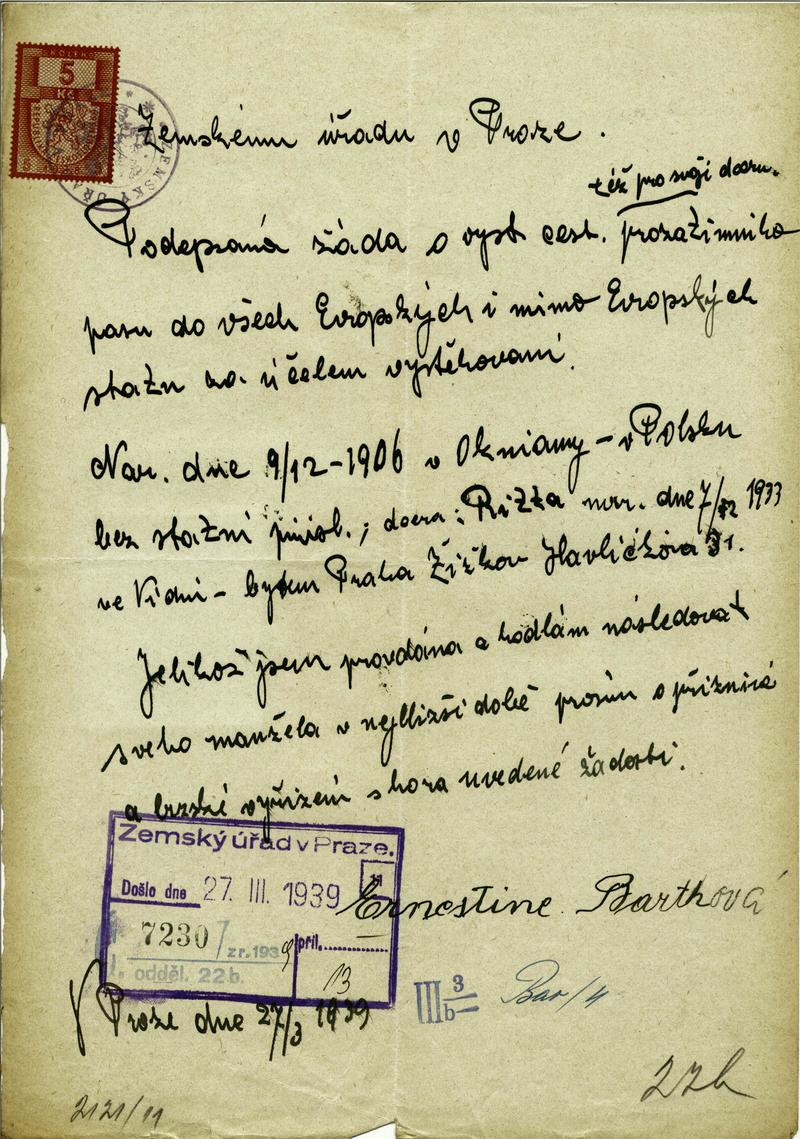 KOLEK
5
Kč
ZEMSKÝ ÚŘAD
Zemskému úřadu v Praze.
též pro svoji dceru.
Podepsaná žáda o vyst. cest. prozatimniho
pasu do všech Evropských i mimo Evropských
statu za účelem vystěhovani.
Nar. dne 9/12-1906 v Okniany - v Polsku
bez statni přisl.; dcera: Ritta nar. dne 7/12 1933
ve Vidni - bytem Praha Žižkov Havličkova 31.
Jelikož jsem provdána a hodlám následovat
sveho manžela v nejbližši době prosim o přiznivé
a brzské vyřizeni shora uvedené žadosti.
Zemský úřad v Praze.
Došlo dne 27. III. 1939
Ernestine Barthová
7230/zr. 1939 příl.
odděl. 22b. 13
V Praze dne 27/3 1939
III 3/b Bar/4
22b
2121/11